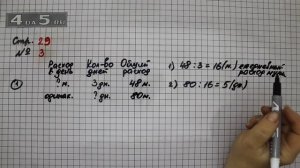 4 ДА 5.
Стр. 29
№ 3
Расход в день Кол-во дней Общий расход
① ? м. 3 дн. 48 м.
одинак. ? дн. 80 м.
1) 48 : 3 = 16 (м.) ежедневный расход муки
2) 80 : 16 = 5 (дн.)